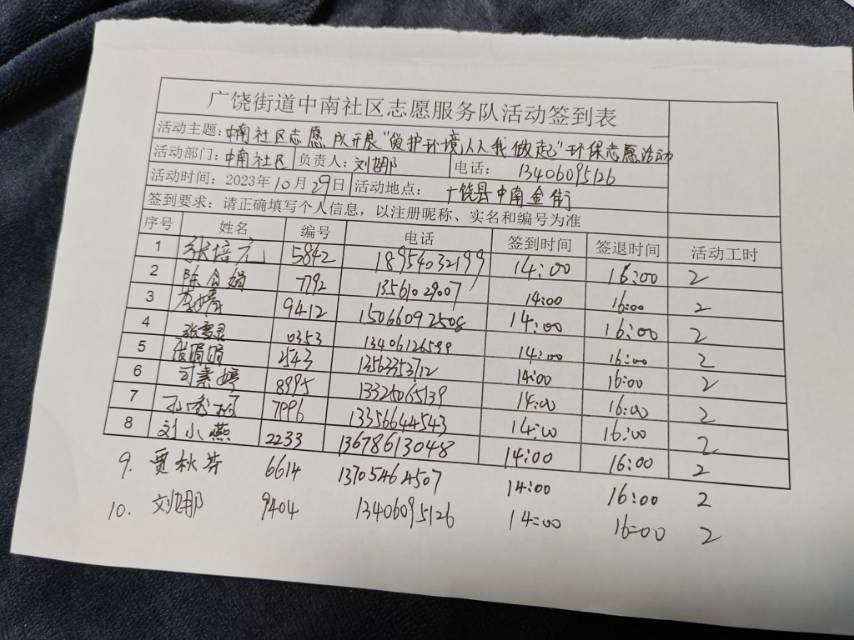 广饶街道中南社区志愿服务队活动签到表
活动主题：中南社区志愿队开展“爱护环境人人我做起”环保志愿活动
活动部门：中南社区 负责人：刘娜 电话：13406095126
活动时间：2023年10月29日 活动地点：广饶县中南金街
签到要求：请正确填写个人信息，以注册昵称、实名和编号为准
序号 姓名 编号 电话 签到时间 签退时间 活动工时
1 张培元 5842 18954032199 14:00 16:00 2
2 陈 娟 7792 13561029007 14:00 16:00 2
3 李 9412 15066092508 14:00 16:00 2
4 张 0353 13406126599 14:00 16:00 2
5 娟娟 2543 13563353712 14:00 16:00 2
6 司素婷 8995 13325065139 14:00 16:00 2
7 7996 13356644543 14:00 16:00 2
8 刘小燕 2233 13678613048 14:00 16:00 2
9. 贾秋芬 6614 13705464507 14:00 16:00 2
10. 刘娜 9404 13406095126 14:00 16:00 2